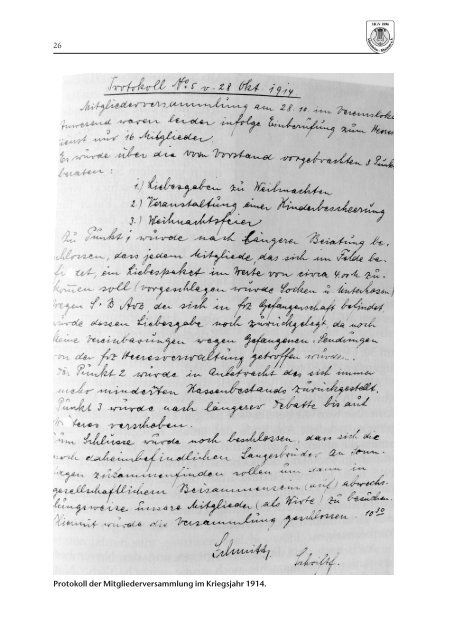 26
MGV 1886
Protokoll No. 5 v. 28 Okt. 1914
Mitgliederversammlung am 28.10 im Vereinslokal
Anwesend waren leider infolge Einberufung zum Heeres
dienst nur 16 Mitglieder
Es wurde über die vom Vorstand vorgebrachten 3 Punkte
beraten:
1.) Liebesgaben zu Weihnachten
2.) Veranstaltung einer Kinderbescheerung
3.) Weihnachtsfeier
Zu Punkt 1 wurde nach längerer Beratung be
schlossen, dass jedem Mitgliede, das sich im Felde be
fi det, ein Liebespaket im Werte von circa 4.00 M zu
kommen soll (vorgeschlagen wurde Socken u Unterhosen)
wegen S. B der sich in frz Gefangenschaft befindet
wurde dessen Liebesgabe noch zurückgelegt, da noch
keine Vereinbarungen wegen Gefangenen Sendungen
von der frz Heeresverwaltung getroffen wurden.
Punkt 2 wurde in Anbetracht des sich immer
mehr minderten Kassenbestands zurückgestellt.
Punkt 3 wurde nach längerer Debatte bis auf
W iteres verschoben.
Zum Schlusse wurde noch beschlossen, dass sich die
noch daheimbefindlichen Sangesbrüder an Sonn
tagen zusammenfinden sollen um dann in
gesellschaftlichem Beisammensein (auf) abwechs
lungsweise unsere Mitglieder (als Wirte) zu besuchen.
Hiermit wurde die Versammlung geschlossen. 10 30
Schmitz
Schriftf.
Protokoll der Mitgliederversammlung im Kriegsjahr 1914.